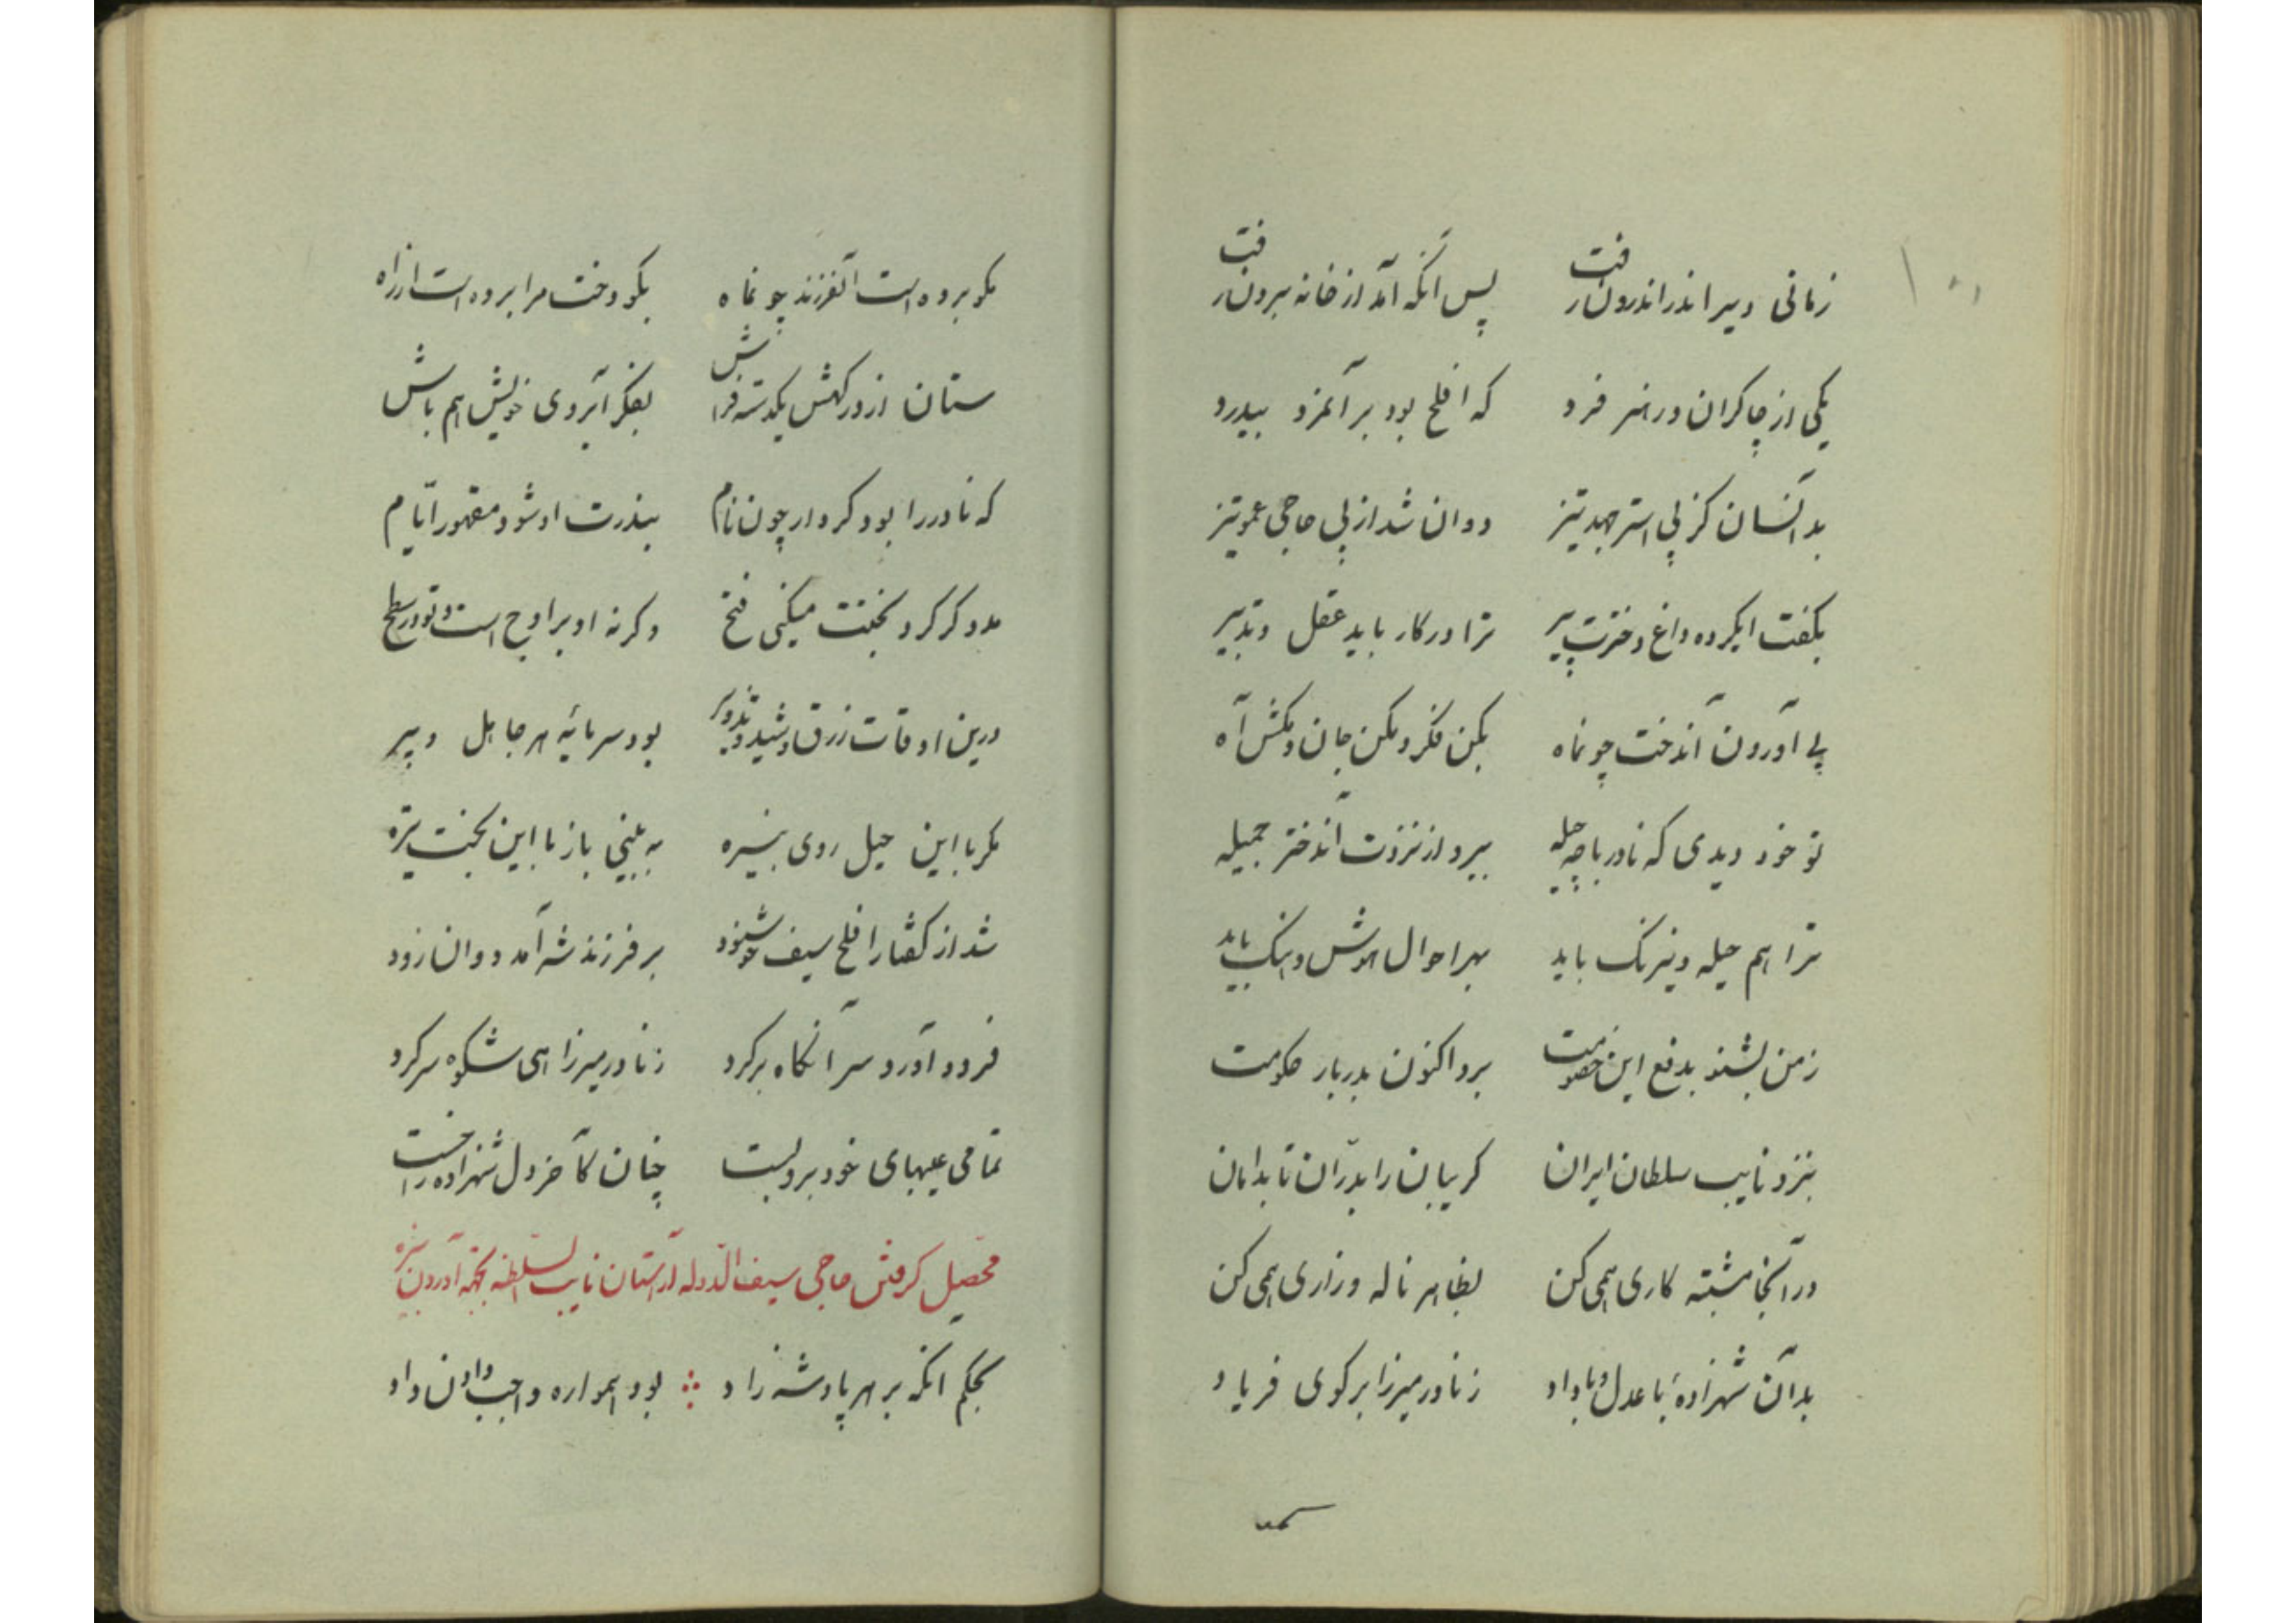 زمانی دیر اندر اندرون رفت پس انگه آمد از خانه برون رفت
یکی از چاکران در هنر فرد که افلح بود بر آنمرد بیدرد
بد آنسان کز پی استر جهد تیز دوان شد از پی حاجی عمو تیز
بگفت ایکرده داغ دخترت پیر ترا در کار باید عقل و تدبیر
پی آوردن آندخت چو نماه بکن فکر و مکن جان و مکش آه
تو خود دیدی که نادر با چه حیله ببرد از نزدت آندختر جمیله
ترا هم حیله و نیرنک باید بهر احوال هوش و هنک باید
ز من بشنو بدفع این خصومت برو اکنون بدربار حکومت
بنزد نایب سلطان ایران کریبان را بدران تا بدامان
در آنجا مشتبه کاری همی کن بظاهر ناله و زاری همی کن
بد آن شهزادهٔ با عدل و با داد ز نادر میرزا بر کوی فریاد
مکو برده است آنفرزند چو نماه بکو دخت مرا برده است از راه
ستان از درکهش یکدسته فراش بفکر آبروی خویش هم باش
که نادر را بود کردار چون نام بیندرت او شود مقهور ایام
مدد کر کرد بختت میکنی فتح و کرنه او بر اوج است و تو در سطح
درین اوقات زرق و شید و تزویر بود سرمایهٔ هر جاهل و پیر
مکر با این حیل روی بنیره به بینی باز با این بخت تیره
شد از کفتار افلح سیف خوشنود بر فرزند شه آمد دوان زود
فرود آورد سر آنکاه بر کرد ز نادر میرزا هی شکوه سر کرد
تمامی عیبهای خود برو بست چنان کآخر دل شهزاده را خست
محصل کرفتن حاجی سیف الدوله از آستان نایب السلطنه بجهة آوردن بنیره
بحکم انکه بر هر پادشه زاد بود همواره واجب دادن داد